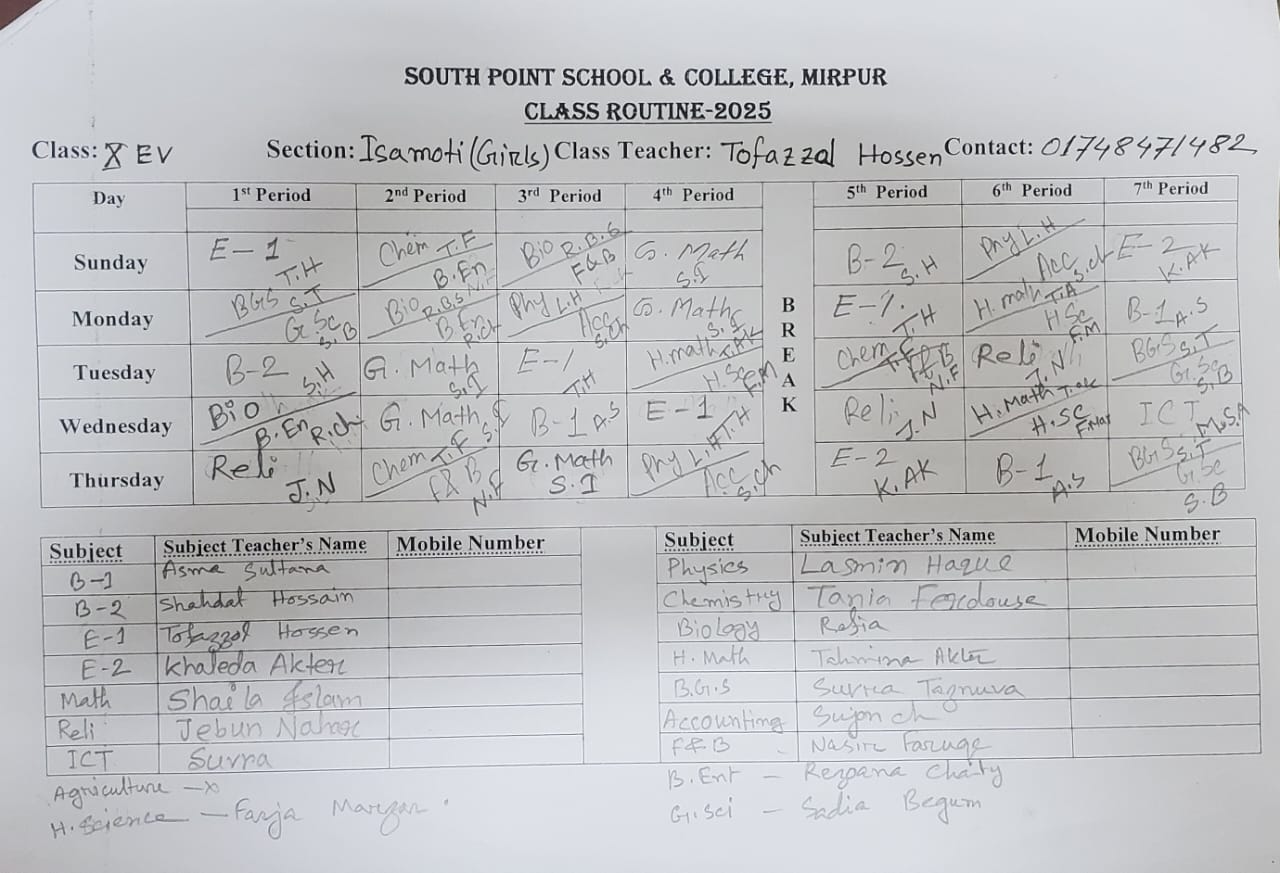 SOUTH POINT SCHOOL & COLLEGE, MIRPUR
CLASS ROUTINE-2025
Class: X EV Section: Isamoti (Girls) Class Teacher: Tofazzal Hossen Contact: 01748471482
Day 1st Period 2nd Period 3rd Period 4th Period BREAK 5th Period 6th Period 7th Period
Sunday E-1 T.H Chem T.F B.En Bio R.B.S F&B G. Math S.I B-2 S.H Phy L.H Acc S.ch E-2 K.AK
Monday BGS S.T G.Sc S.B Bio R.B.S B.En R.ch Phy L.H Acc S.ch G. Math S.I E-1 T.H H.math T.A H.Sc F.M B-1 A.S
Tuesday B-2 S.H G. Math S.I E-1 T.H H.math T.AK H.Sc F.M Chem T.F F&B N.F Reli J.N BGS S.T G.Sc S.B
Wednesday Bio B.En R.ch G. Math S.I B-1 A.S E-1 T.H Reli J.N H.Math T.ak H.SC ICT M.S.A
Thursday Reli J.N Chem T.F F&B N.F G.Math S.I Phy L.H Acc S.ch E-2 K.AK B-1 A.S BGS S.T G.Sc S.B
Subject Subject Teacher's Name Mobile Number Subject Subject Teacher's Name Mobile Number
B-1 Asma Sultana Physics Lasmin Haque
B-2 Shahdat Hossain Chemistry Tania Ferdouse
E-1 Tofazzol Hossen Biology Rafia
E-2 Khaleda Akter H. Math Tahmina Akter
Math Shaila Islam B.G.S
Reli Jebun Nahar Accounting Sujon ch
ICT F&B Nasir Faruqe
Agriculture - x B.Ent - Rezpana Chaity
H. Science - Farja G.Sci - Sadia Begum